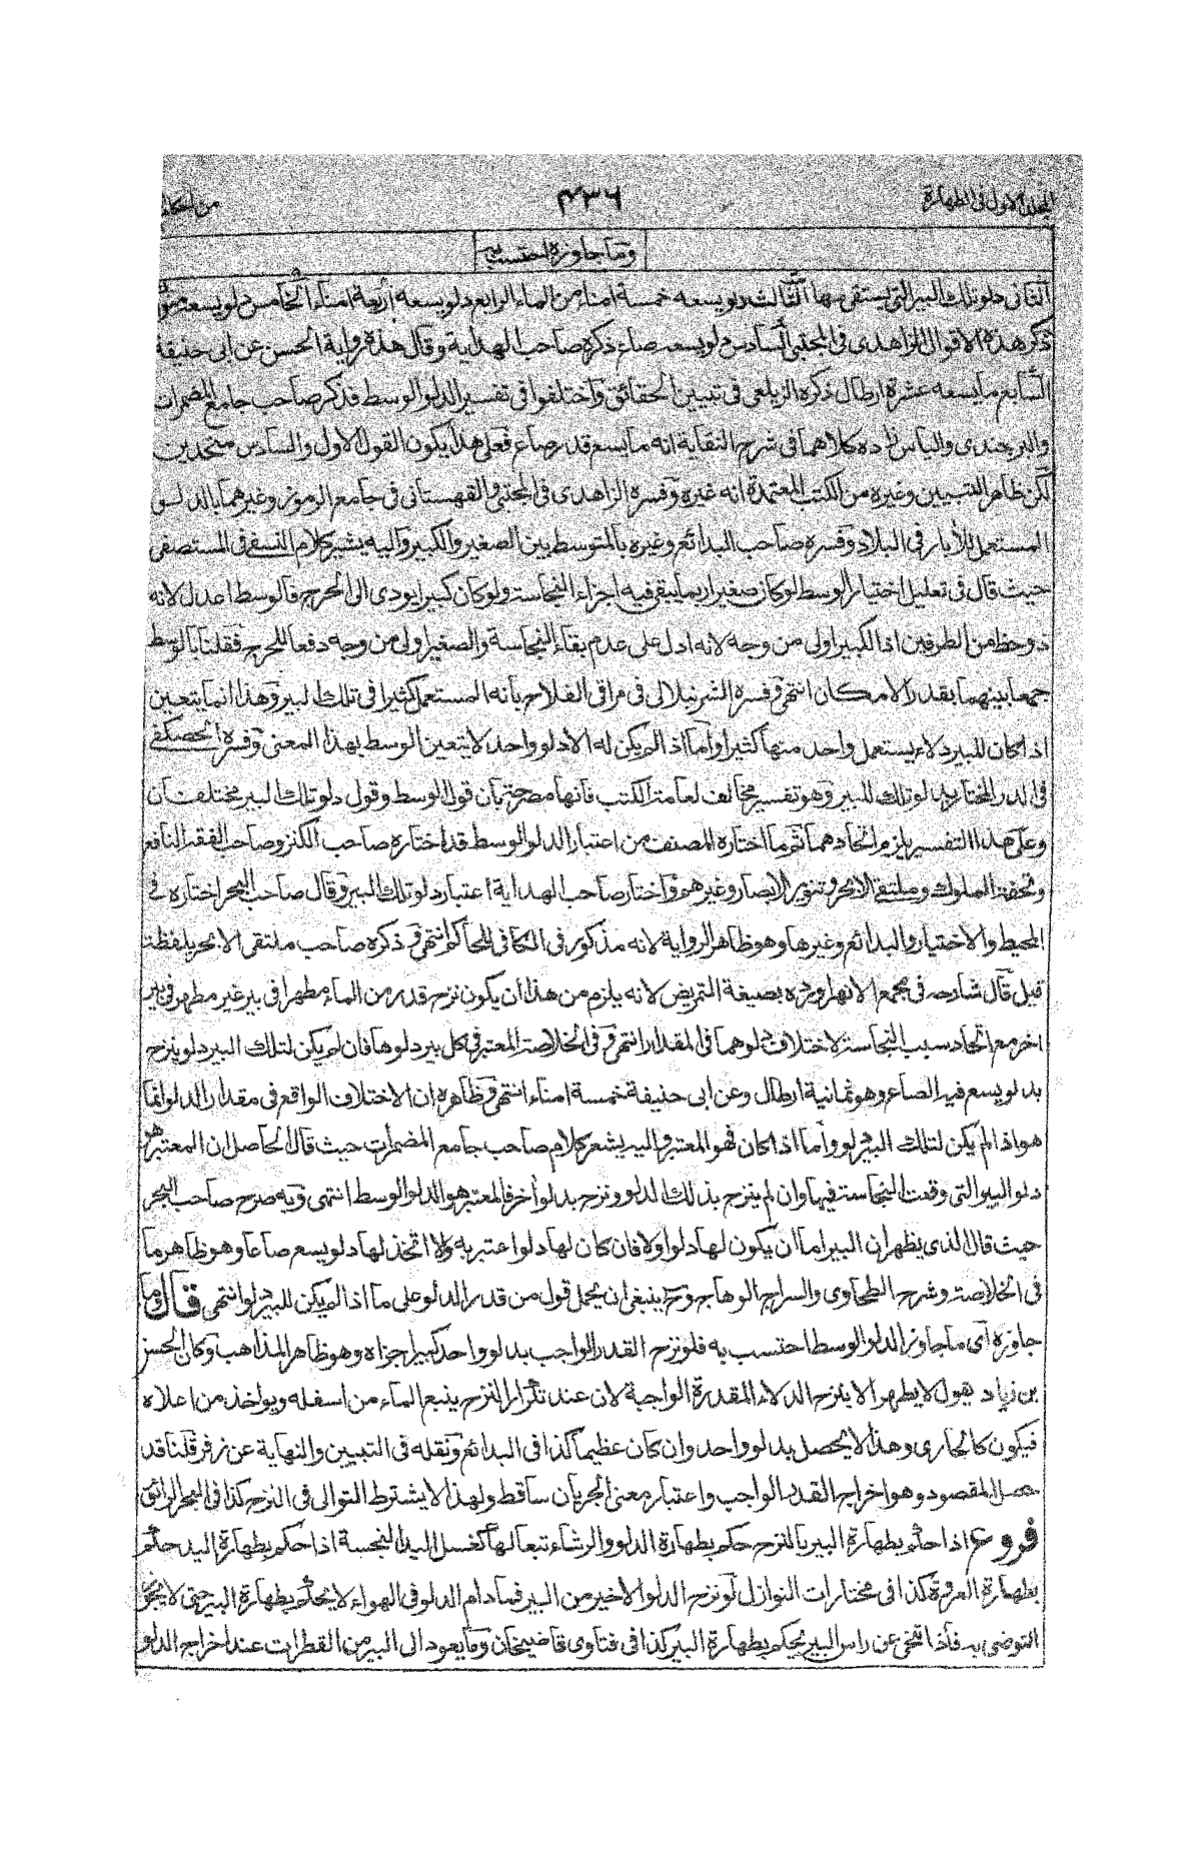 المجلد الاول فى الطهارة ٤٣٦
وما جاوزه احتسب به
الثانى دلو تلك البير التى يستقى بها الثالث دلو يسعه خمسة امناء من الماء الرابع دلو يسعه اربعة امناء الخامس دلو يسعه
ذكر هذه الاقوال الزاهدى فى المجتبى السادس دلو يسعه صاع ذكره صاحب الهداية وقال هذه رواية الحسن عن ابى حنيفة
السابع ما يسعه عشرة ارطال ذكره الزيلعى فى تبيين الحقائق واختلفوا فى تفسير الدلو الوسط فذكر صاحب جامع المضمرات
والبرجندى والياس زاده كلاهما فى شرح النقاية انه ما يسع قدر صاع فعلى هذا يكون القول الاول والسادس متحدين
لكن ظاهر التبيين وغيره من الكتب المعتمدة انه غيره وفسره الزاهدى فى المجتبى والقهستانى فى جامع الرموز وغيرهما بالدلو
المستعمل للأبار فى البلاد وفسره صاحب البدائع وغيره بالمتوسط بين الصغير والكبير واليه يشير كلام النسفى فى المستصفى
حيث قال فى تعليل اختيار الوسط لو كان صغيرا ربما يبقى فيه اجزاء النجاسة ولو كان كبيرا يودى الى الحرج فالوسط اعدل لانه
ذو حظ من الطرفين اذا الكبير اولى من وجه لانه ادل على عدم بقاء النجاسة والصغير اولى من وجه دفعا للحرج فقلنا بالوسط
جمعا بينهما بقدر الامكان انتهى وفسره الشرنبلالى فى مراقى الفلاح بأنه المستعمل كثيرا فى تلك البير وهذا انما يتعين
اذا كان للبير دلاء يستعمل واحد منها كثيرا وأما اذا لم يكن له الا دلو واحد لا يتعين الوسط بهذا المعنى وفسره الحصكفى
فى الدر المختار بدلو تلك البير وهو تفسير مخالف لعامة الكتب فأنها مصرحة بان قول الوسط وقول دلو تلك البير مختلفان
وعلى هذا التفسير يلزم اتحادهما ثم ما اختاره المصنف من اعتبار الدلو الوسط قد اختاره صاحب الكنز وصاحب الفقه النافع
وتحفة الملوك وملتقى الابحر وتنوير الابصار وغيرهم واختار صاحب الهداية اعتبار دلو تلك البير وقال صاحب البحر اختاره فى
المحيط والاختيار والبدائع وغيرها وهو ظاهر الرواية لانه مذكور فى الكافى للحاكم انتهى وذكره صاحب ملتقى الابحر بلفظة
قيل قال شارحه فى مجمع الانهر اورده بصيغة التمريض لانه يلزم من هذا ان يكون نزح قدر من الماء مطهرا فى بير غير مطهر فى بير
اخر مع اتحاد سبب النجاسة لاختلاف دلوهما فى المقدار انتهى وفى الخلاصة المعتبر فى كل بير دلوها فان لم يكن لتلك البير دلو ينزح
بدلو يسع فيه الصاع وهو ثمانية ارطال وعن ابى حنيفة خمسة امناء انتهى وظاهره ان الاختلاف الواقع فى مقدار الدلو انما
هو اذا لم يكن لتلك البير دلو وأما اذا كان فهو المعتبر واليه يشعر كلام صاحب جامع المضمرات حيث قال الحاصل ان المعتبر هو
دلو البير التى وقعت النجاسة فيها وان لم ينزح بذلك الدلو ونزح بدلو أخر فالمعتبر هو الدلو الوسط انتهى وبه صرح صاحب البحر
حيث قال الذى يظهر ان البير اما ان يكون لها دلو اولا فان كان لها دلو اعتبر به ولا اتخذ لها دلو يسع صاعا وهو ظاهر ما
فى الخلاصة وشرح الطحاوى والسراج الوهاج وح ينبغى ان يحمل قول من قدر الدلو على ما اذا لم يكن للبير دلو انتهى قال وما
جاوزه أى ما جاوز الدلو الوسط احتسب به فلو نزح القدر الواجب بدلو واحد كبير اجزاه وهو ظاهر المذاهب وكان الحسن
بن زياد يقول لا يطهر الا بنزح الدلاء المقدرة الواجبة لان عند تكرار النزح ينبع الماء من اسفله ويواخذ من اعلاه
فيكون كالجارى وهذا لا يحصل بدلو واحد وان كان عظيما كذا فى البدائع ونقله فى التبيين والنهاية عن زفر قلنا قد
حصل المقصود وهو اخراج القدر الواجب واعتبار معنى الجريان ساقط ولهذا لا يشترط التوالى فى النزح كذا فى البحر الرائق
فروع اذا حكم بطهارة البير بالنزح حكم بطهارة الدلو والرشاء تبعا لها كغسل اليد النجسة اذا حكم بطهارة اليد حكم
بطهارة العروة كذا فى مختارات النوازل لو نزح الدلو الاخير من البير فما دام الدلو فى الهواء لا يحكم بطهارة البير حتى لا يجوز
التوضى به فأذا تنحى عن راس البير يحكم بطهارة البير كذا فى فتاوى قاضيخان وما يعود الى البير من القطرات عند اخراج الدلو